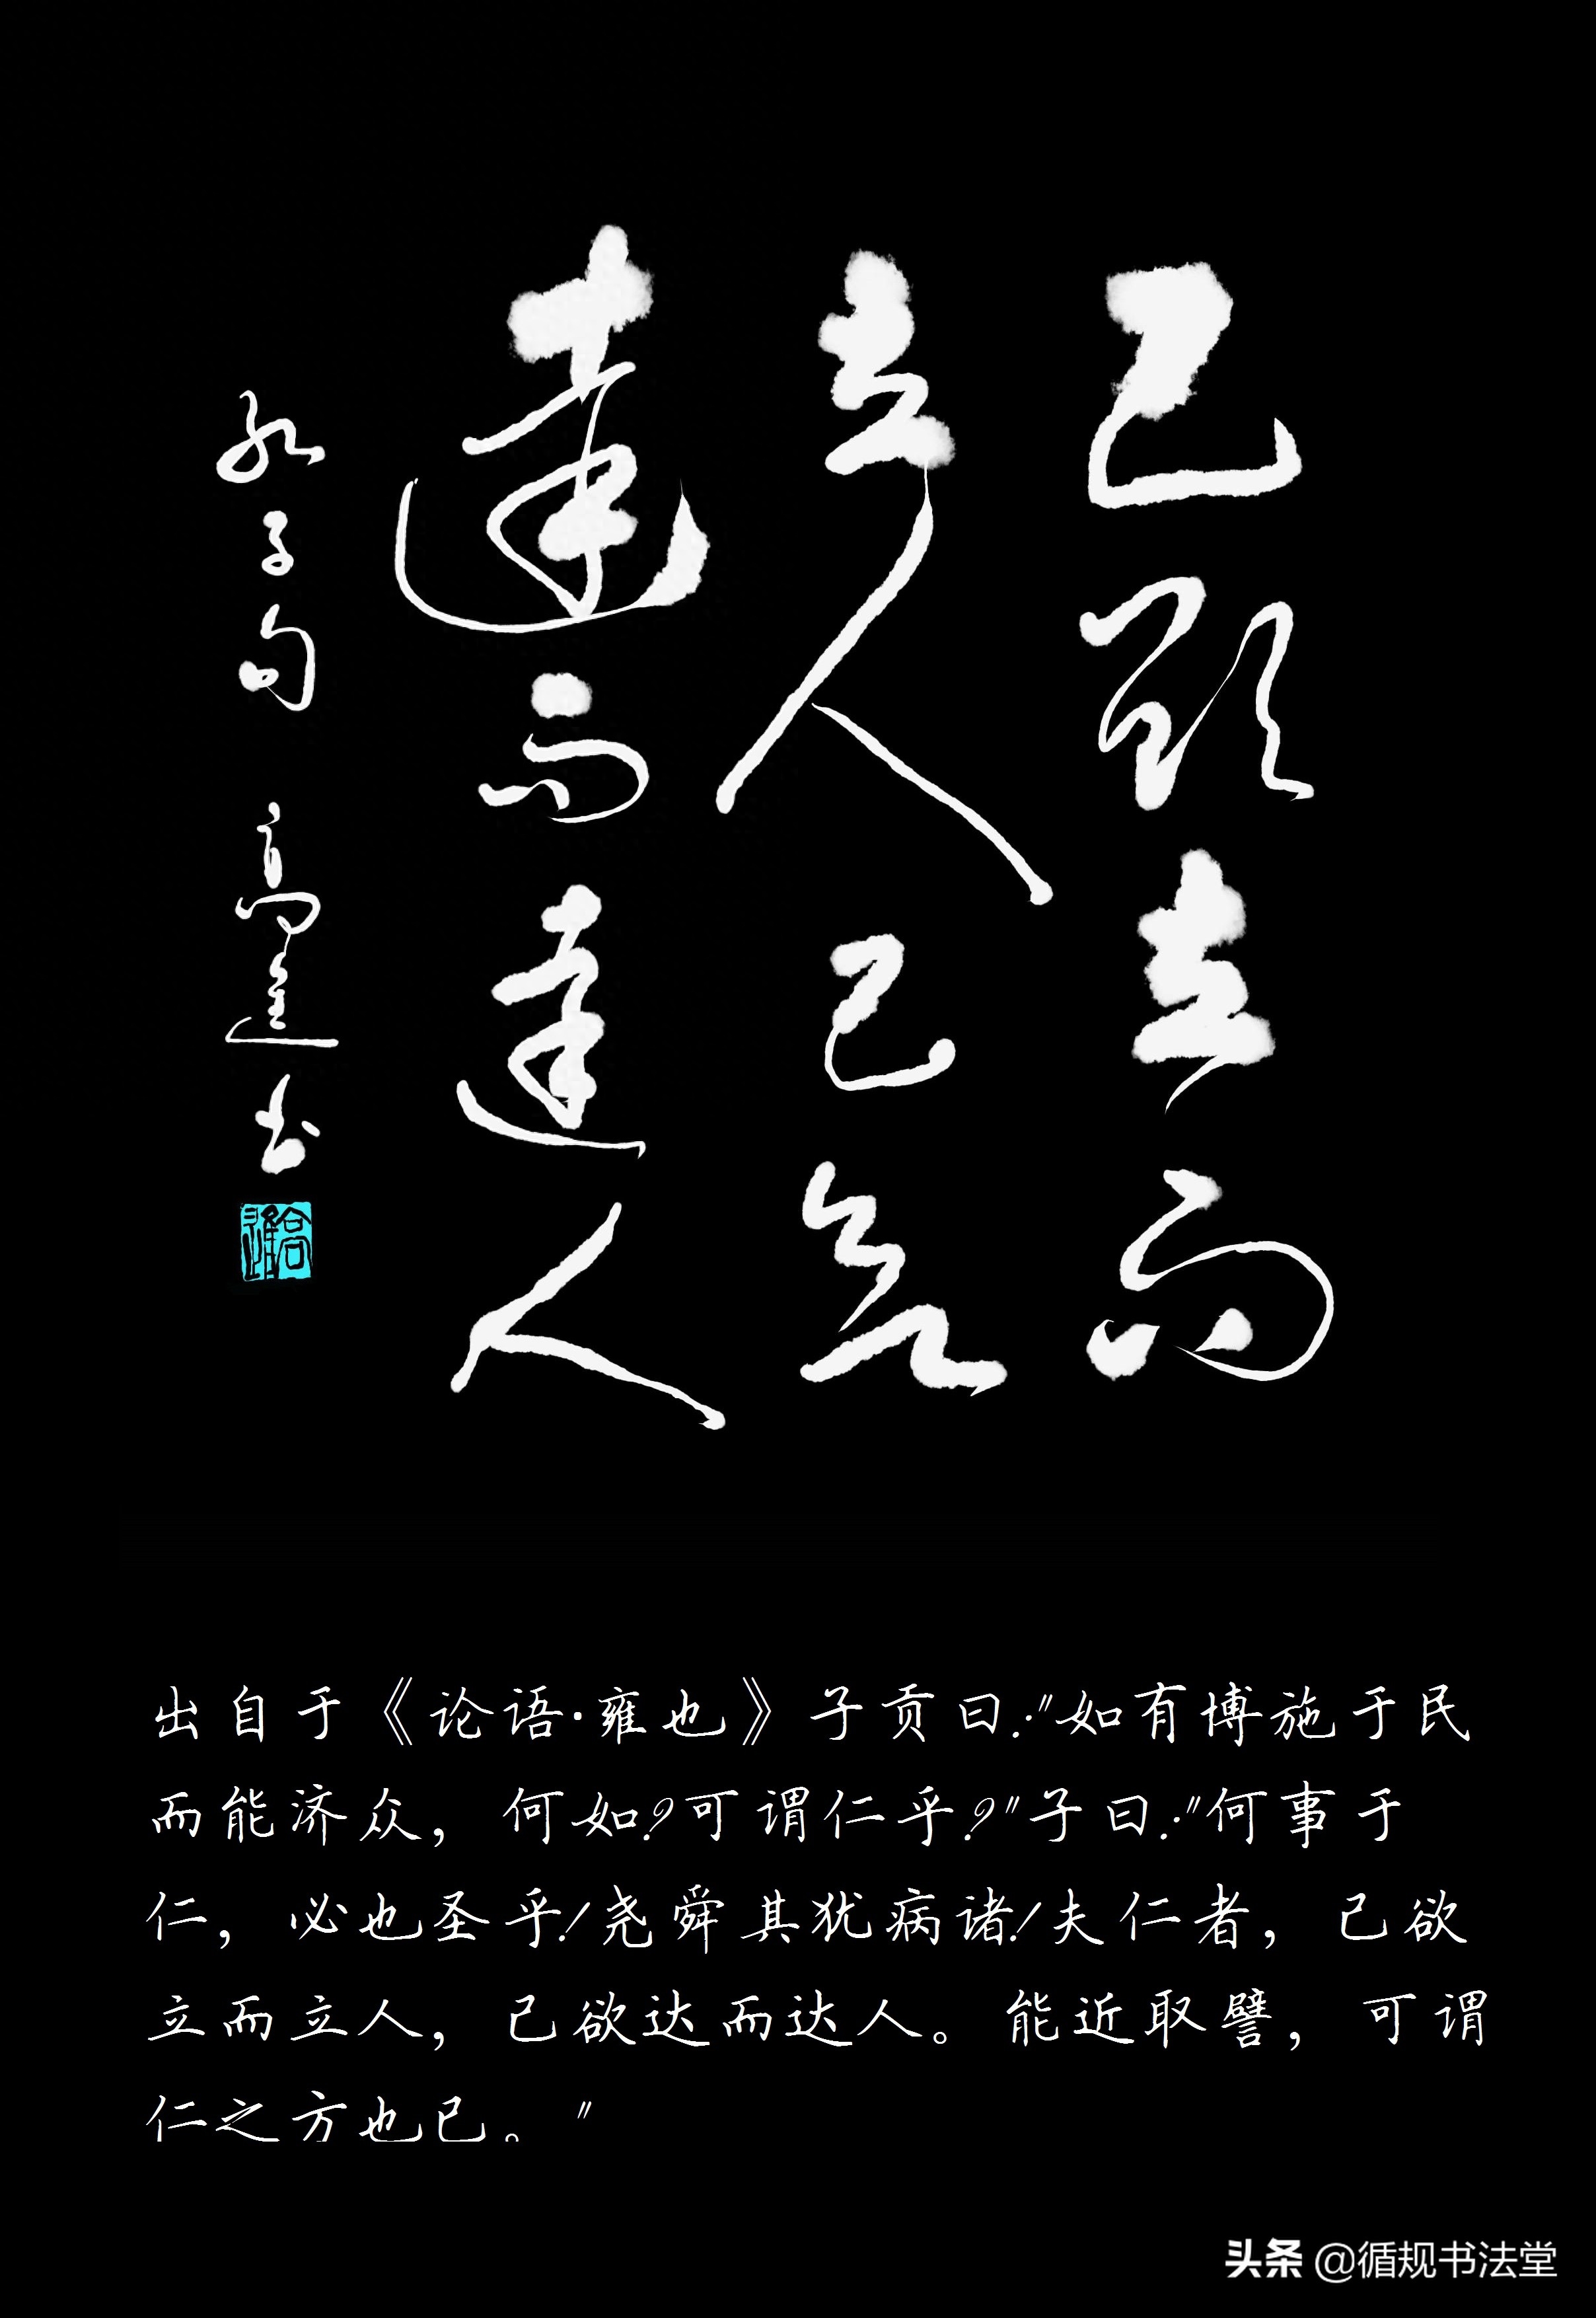 己欲立而
立人己欲
達而達人
孔子句 高進书
高進
出自于《论语·雍也》子贡曰:"如有博施于民
而能济众，何如?可谓仁乎?"子曰:"何事于
仁，必也圣乎!尧舜其犹病诸!夫仁者，己欲
立而立人，己欲达而达人。能近取譬，可谓
仁之方也已。"
头条 @循规书法堂